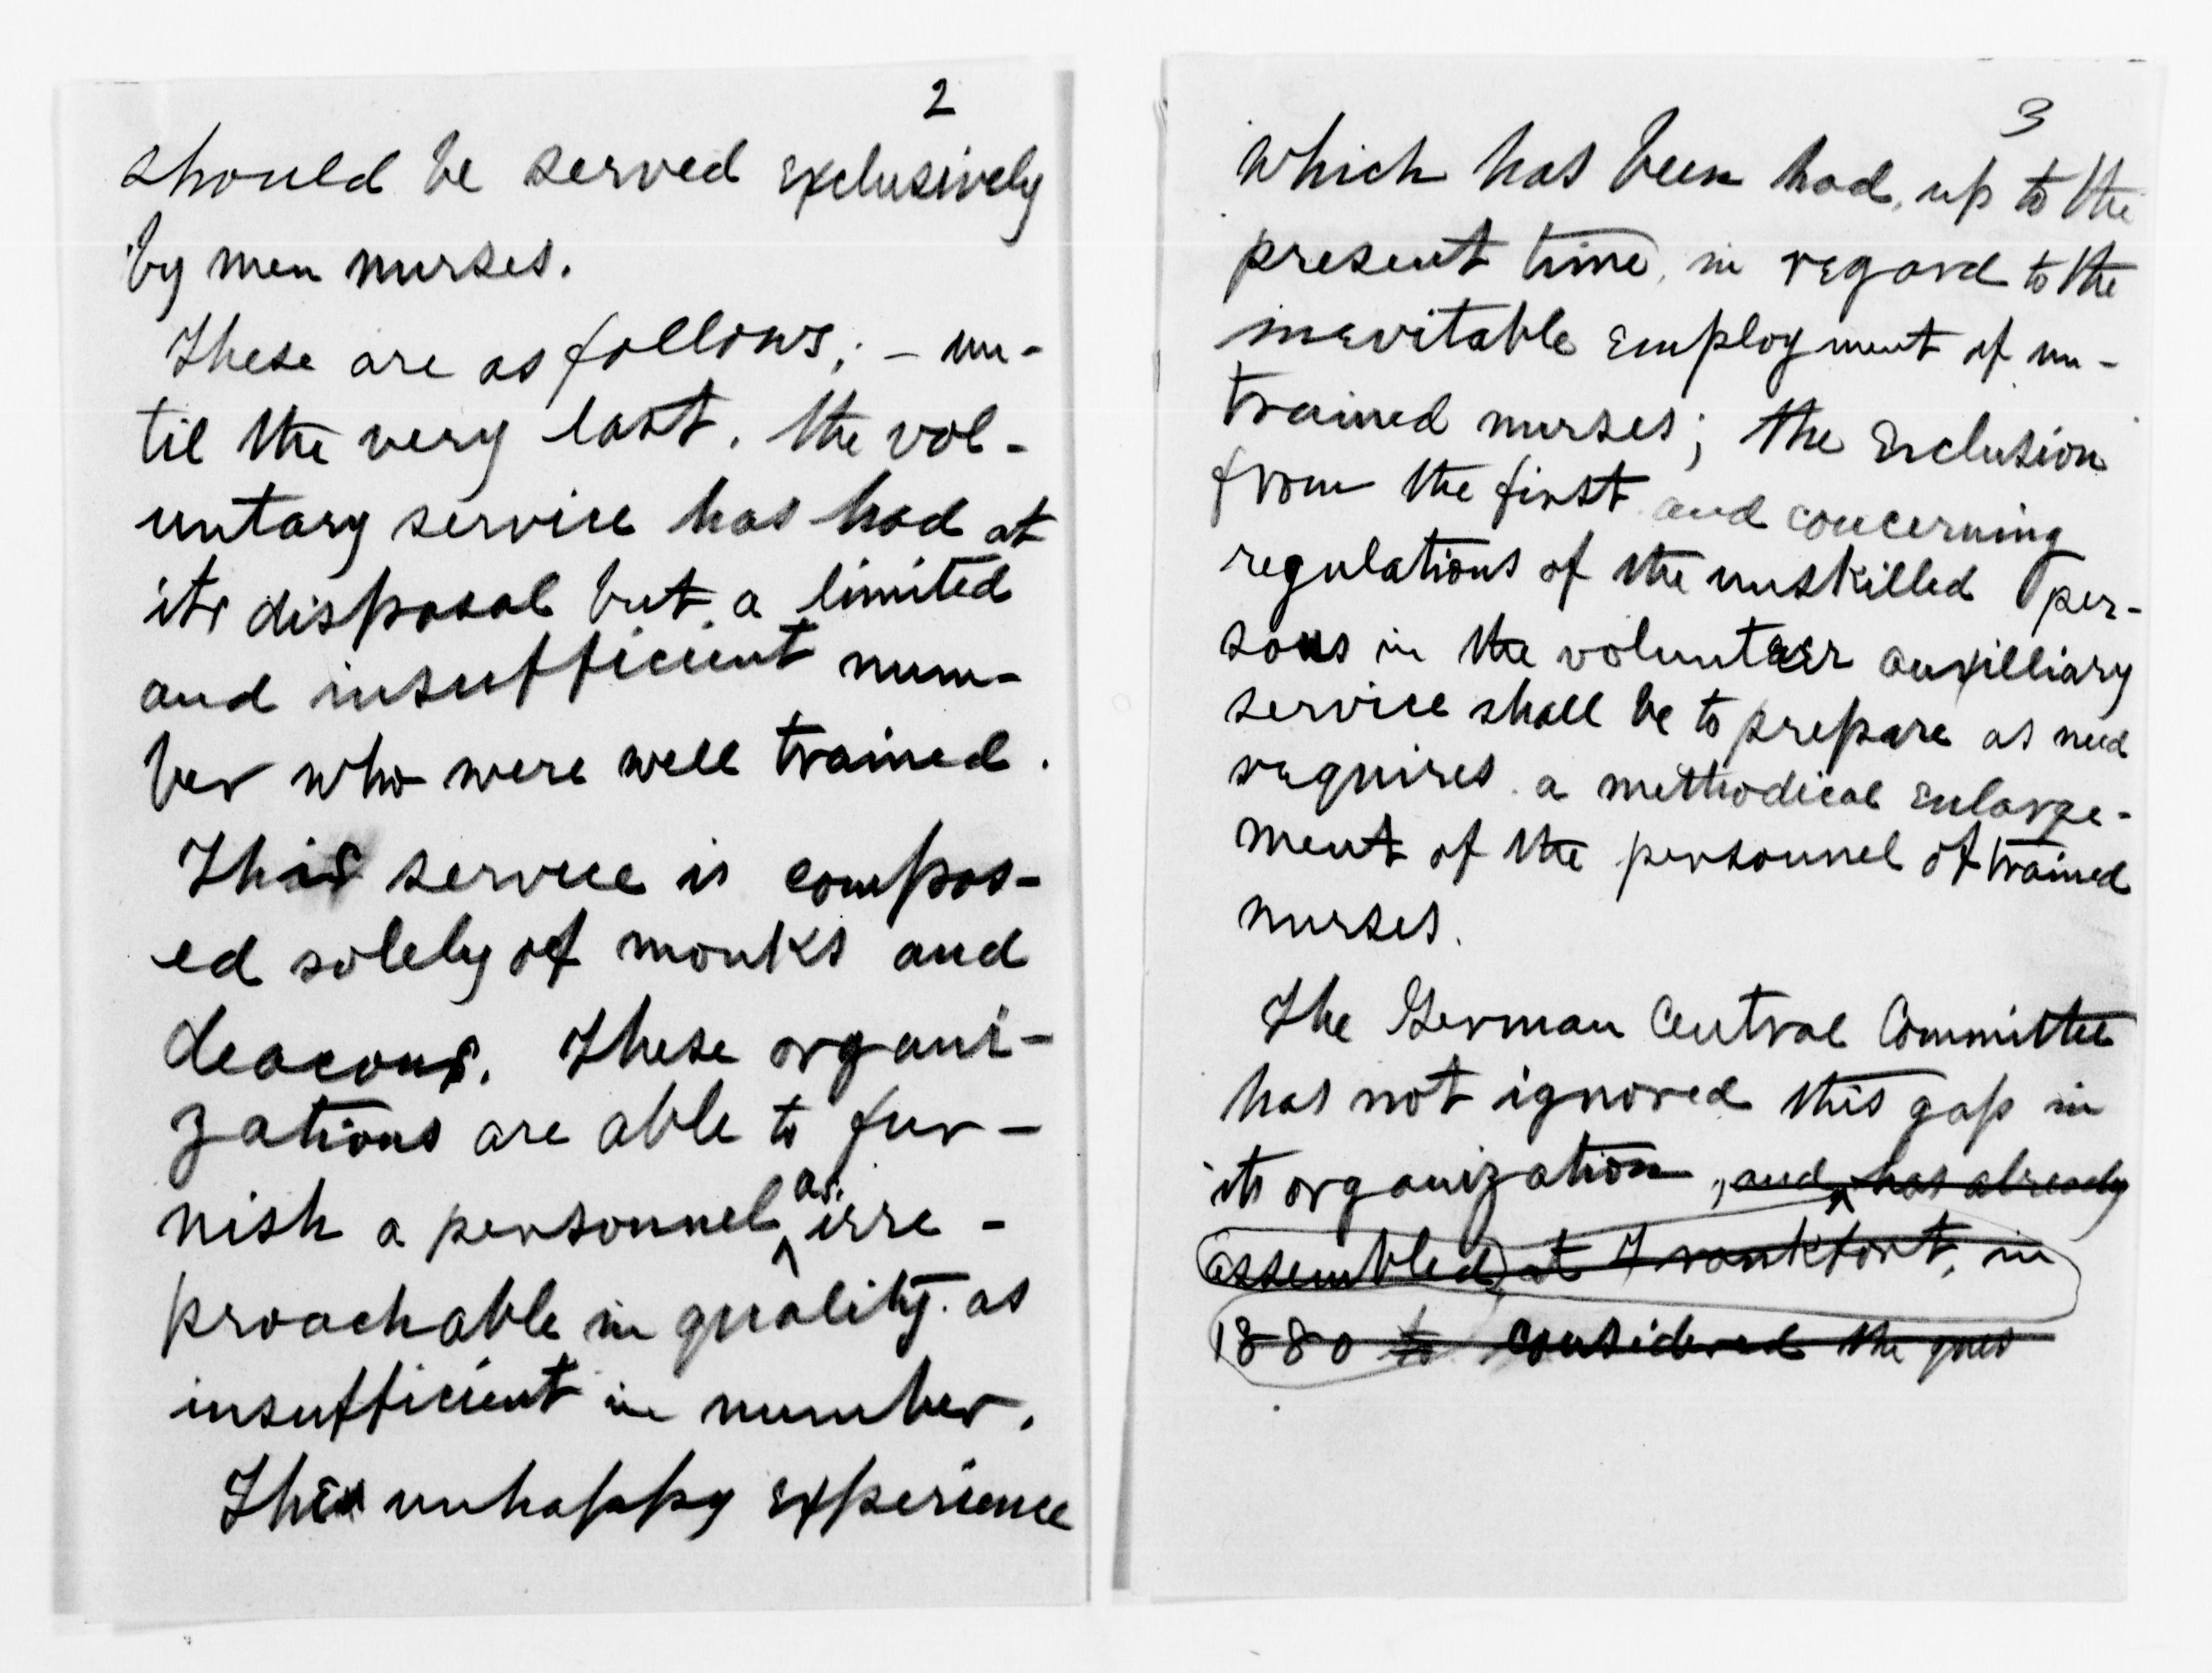 2
should be served exclusively
by men nurses.
These are as follows; – un-
til the very last. the vol-
untary service has had at
its disposal but a limited
and insufficient num-
ber who were well trained.
This service is compos-
ed solely of monks and
deacons. These organi-
zations are able to fur-
nish a personnel as irre-
proachable in quality. as
insufficient in number.
The unhappy experience
3
which has been had, up to the
present time, in regard to the
inevitable employment of un-
trained nurses; the exclusion
from the first and concerning
regulations of the unskilled per-
sons in the volunteer auxilliary
service shall be to prepare as need
requires. a methodical enlarge-
ment of the personnel of trained
nurses.
The German Central Committee
has not ignored this gap in
its organization, and has already
assembled at Frankfort, in
1880 to considered the ques